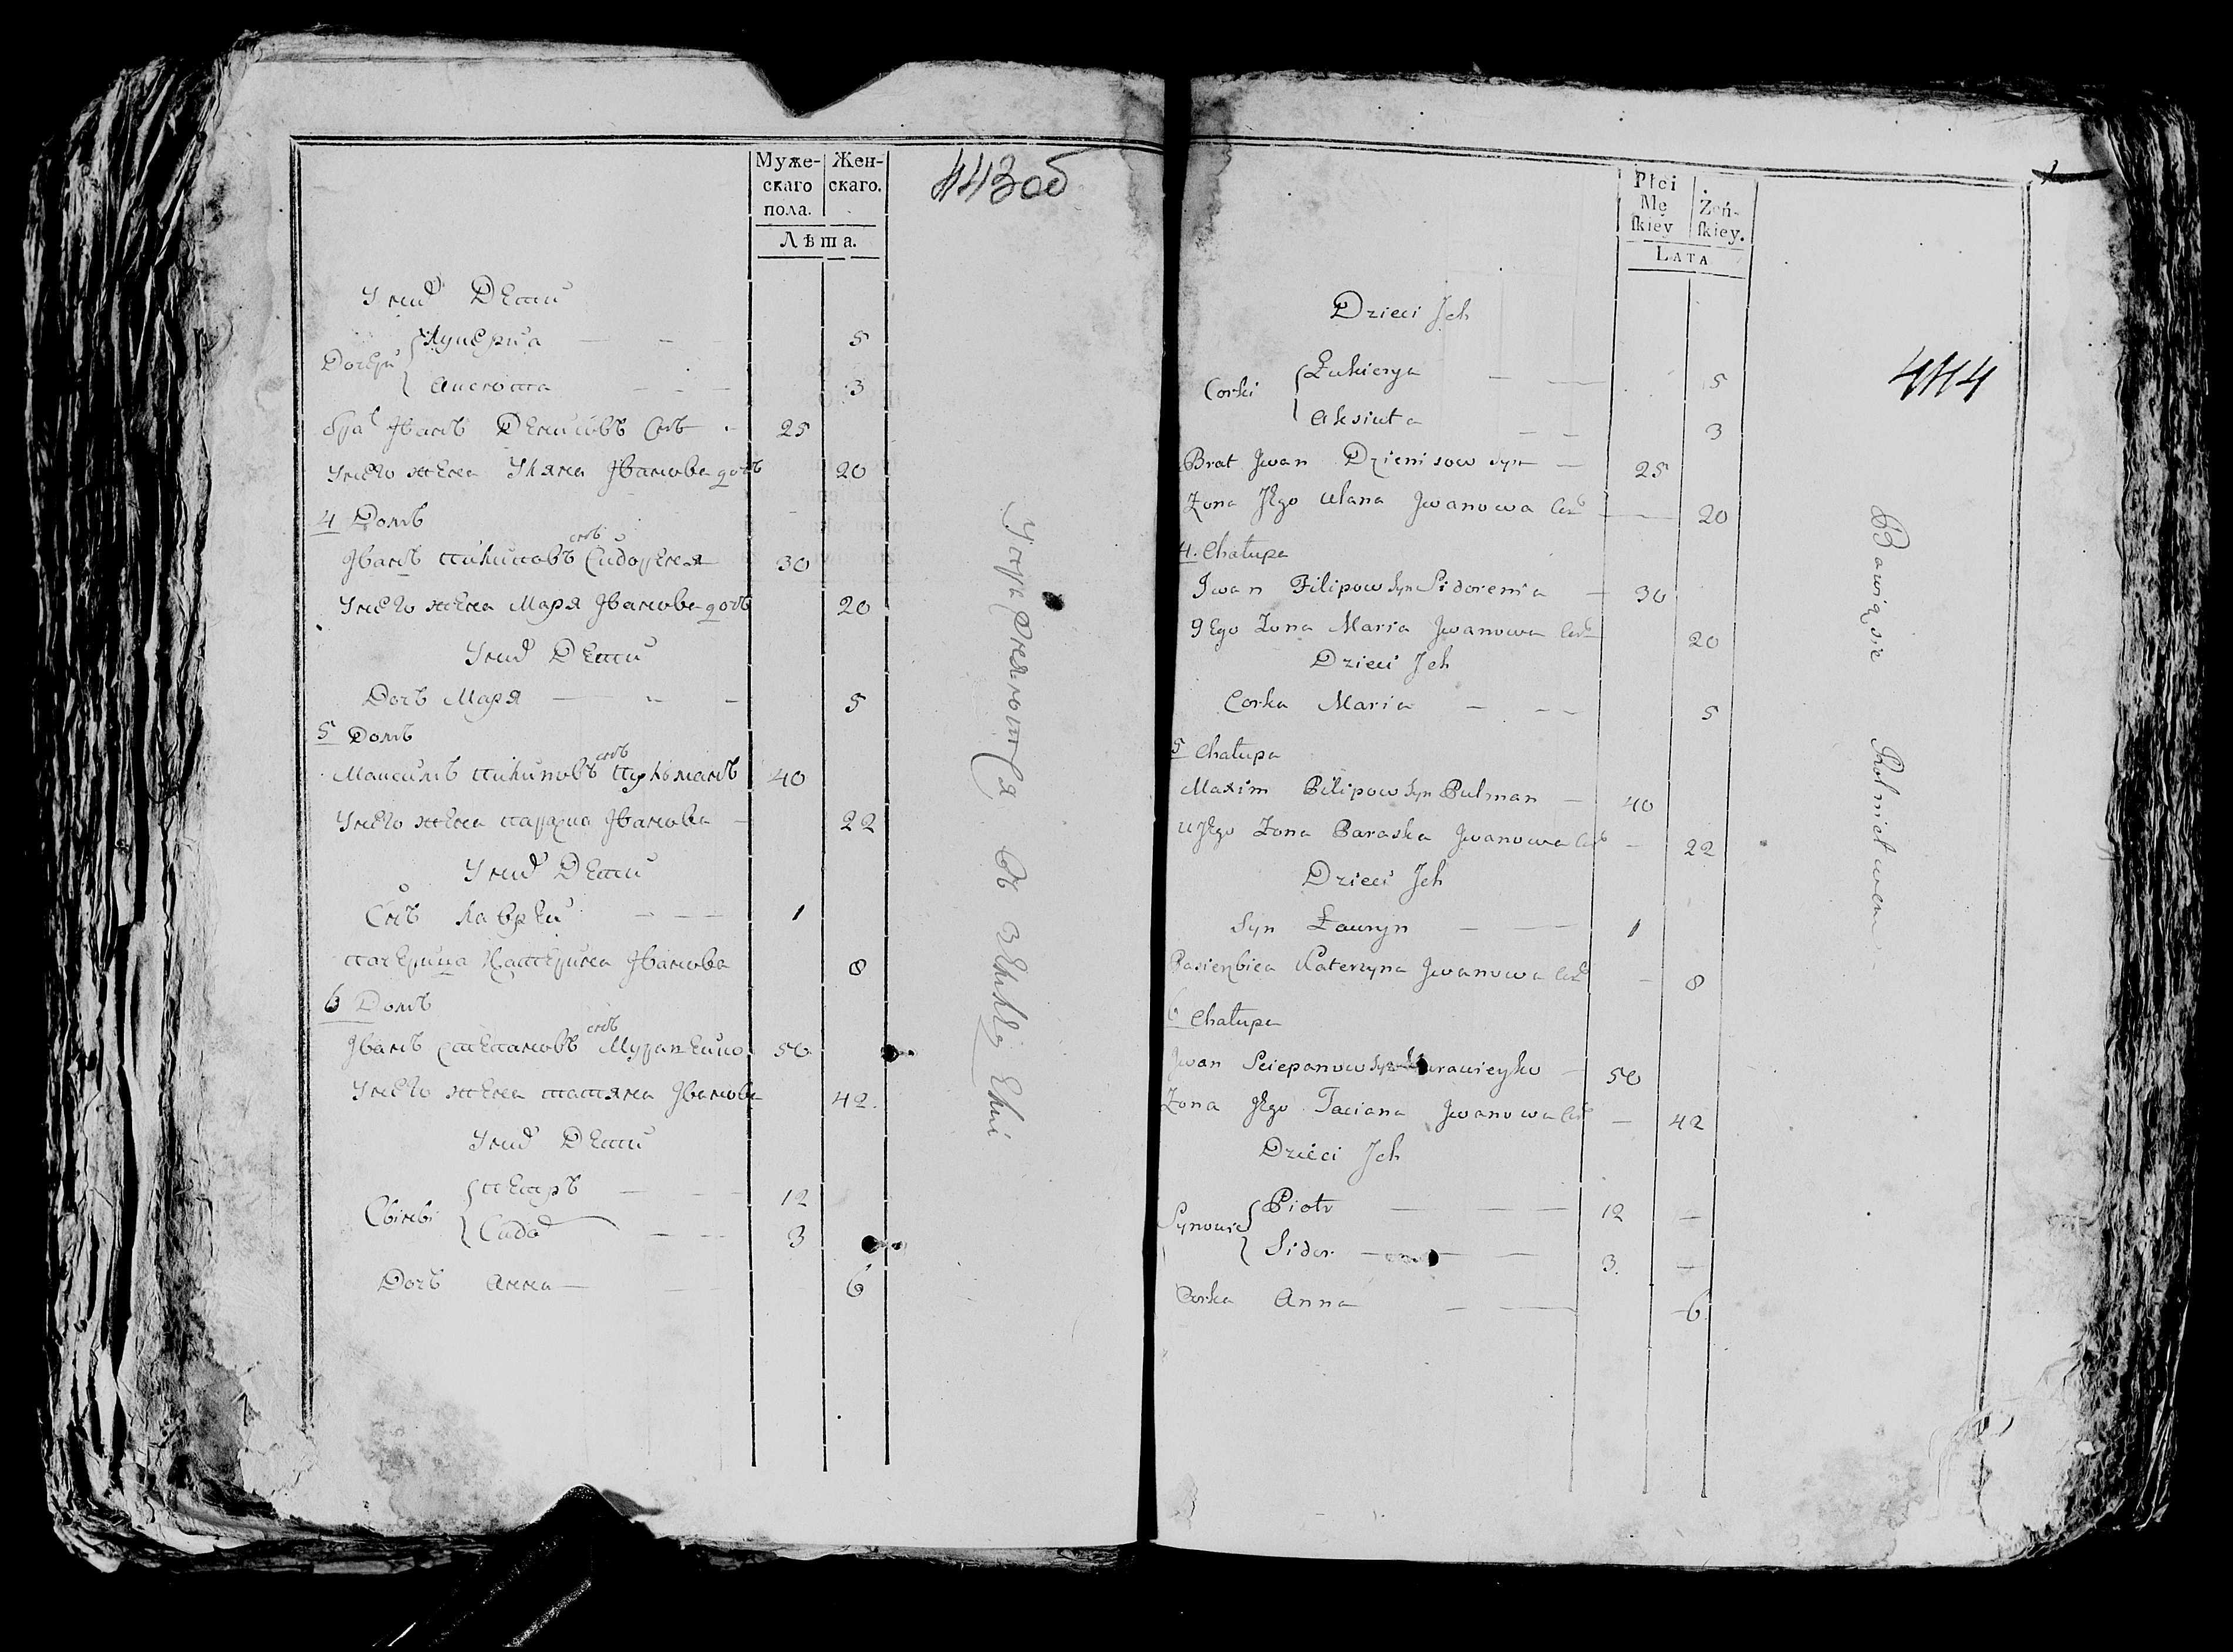 Муже-
скаго
пола.
Жен-
скаго.
Лѣта.
443об
У них Дети
Дочери
Лукеръя 5
Аксюта 3
брат Иванъ Денисовъ снъ 25
У нево жена Уляна Иванова дочь 20
4 Домъ
Иванъ Пилиповъ снъ Сидореня 30
У нево жена Маря Иванова дочь 20
У них Дети
Дочь Маря 5
5 Домъ
Максимъ Пилиповъ снъ Пулманъ 40
У нево жена Параска Иванова 22
У них Дети
Снъ Лаврей 1
Пачерица Катерина Иванова 8
6 Домъ
Иванъ Степановъ снъ Муравейко 50
У нево жена Татяна Иванова 42
У них Дети
Сыны
Петръ 12
Сидор 3
Дочь Анна 6
Упражняются в
Płci
Mę
skiey
Zeń-
skiey.
LATA
444
Dzieci Jch
Corki
Łukierya 5
Aksiuta 3
Brat Jwan Dzienisow syn 25
Zona Jego Ulana Jwanowa 20
4. Chałupa
Jwan Filipow Syn Sidorenia 30
Jego Zona Maria Jwanowa 20
Dzieci Jch
Corka Maria 5
5 Chałupa
Maxim Pilipow Syn Pulman 40
U Jego Zona Paraska Jwanowa 22
Dzieci Jch
Syn Ławryn 1
Pasierbica Katerzyna Jwanowa 8
6 Chałupa
Jwan Sciepanow Syn Murawieyko 50
Zona Jego Taciana Jwanowa 42
Dzieci Jch
Synowie
Piotr 12
Sidor 3.
Corka Anna 6
Bawią sie Rolnictwem